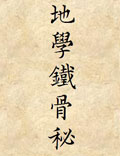 地學鐵骨秘